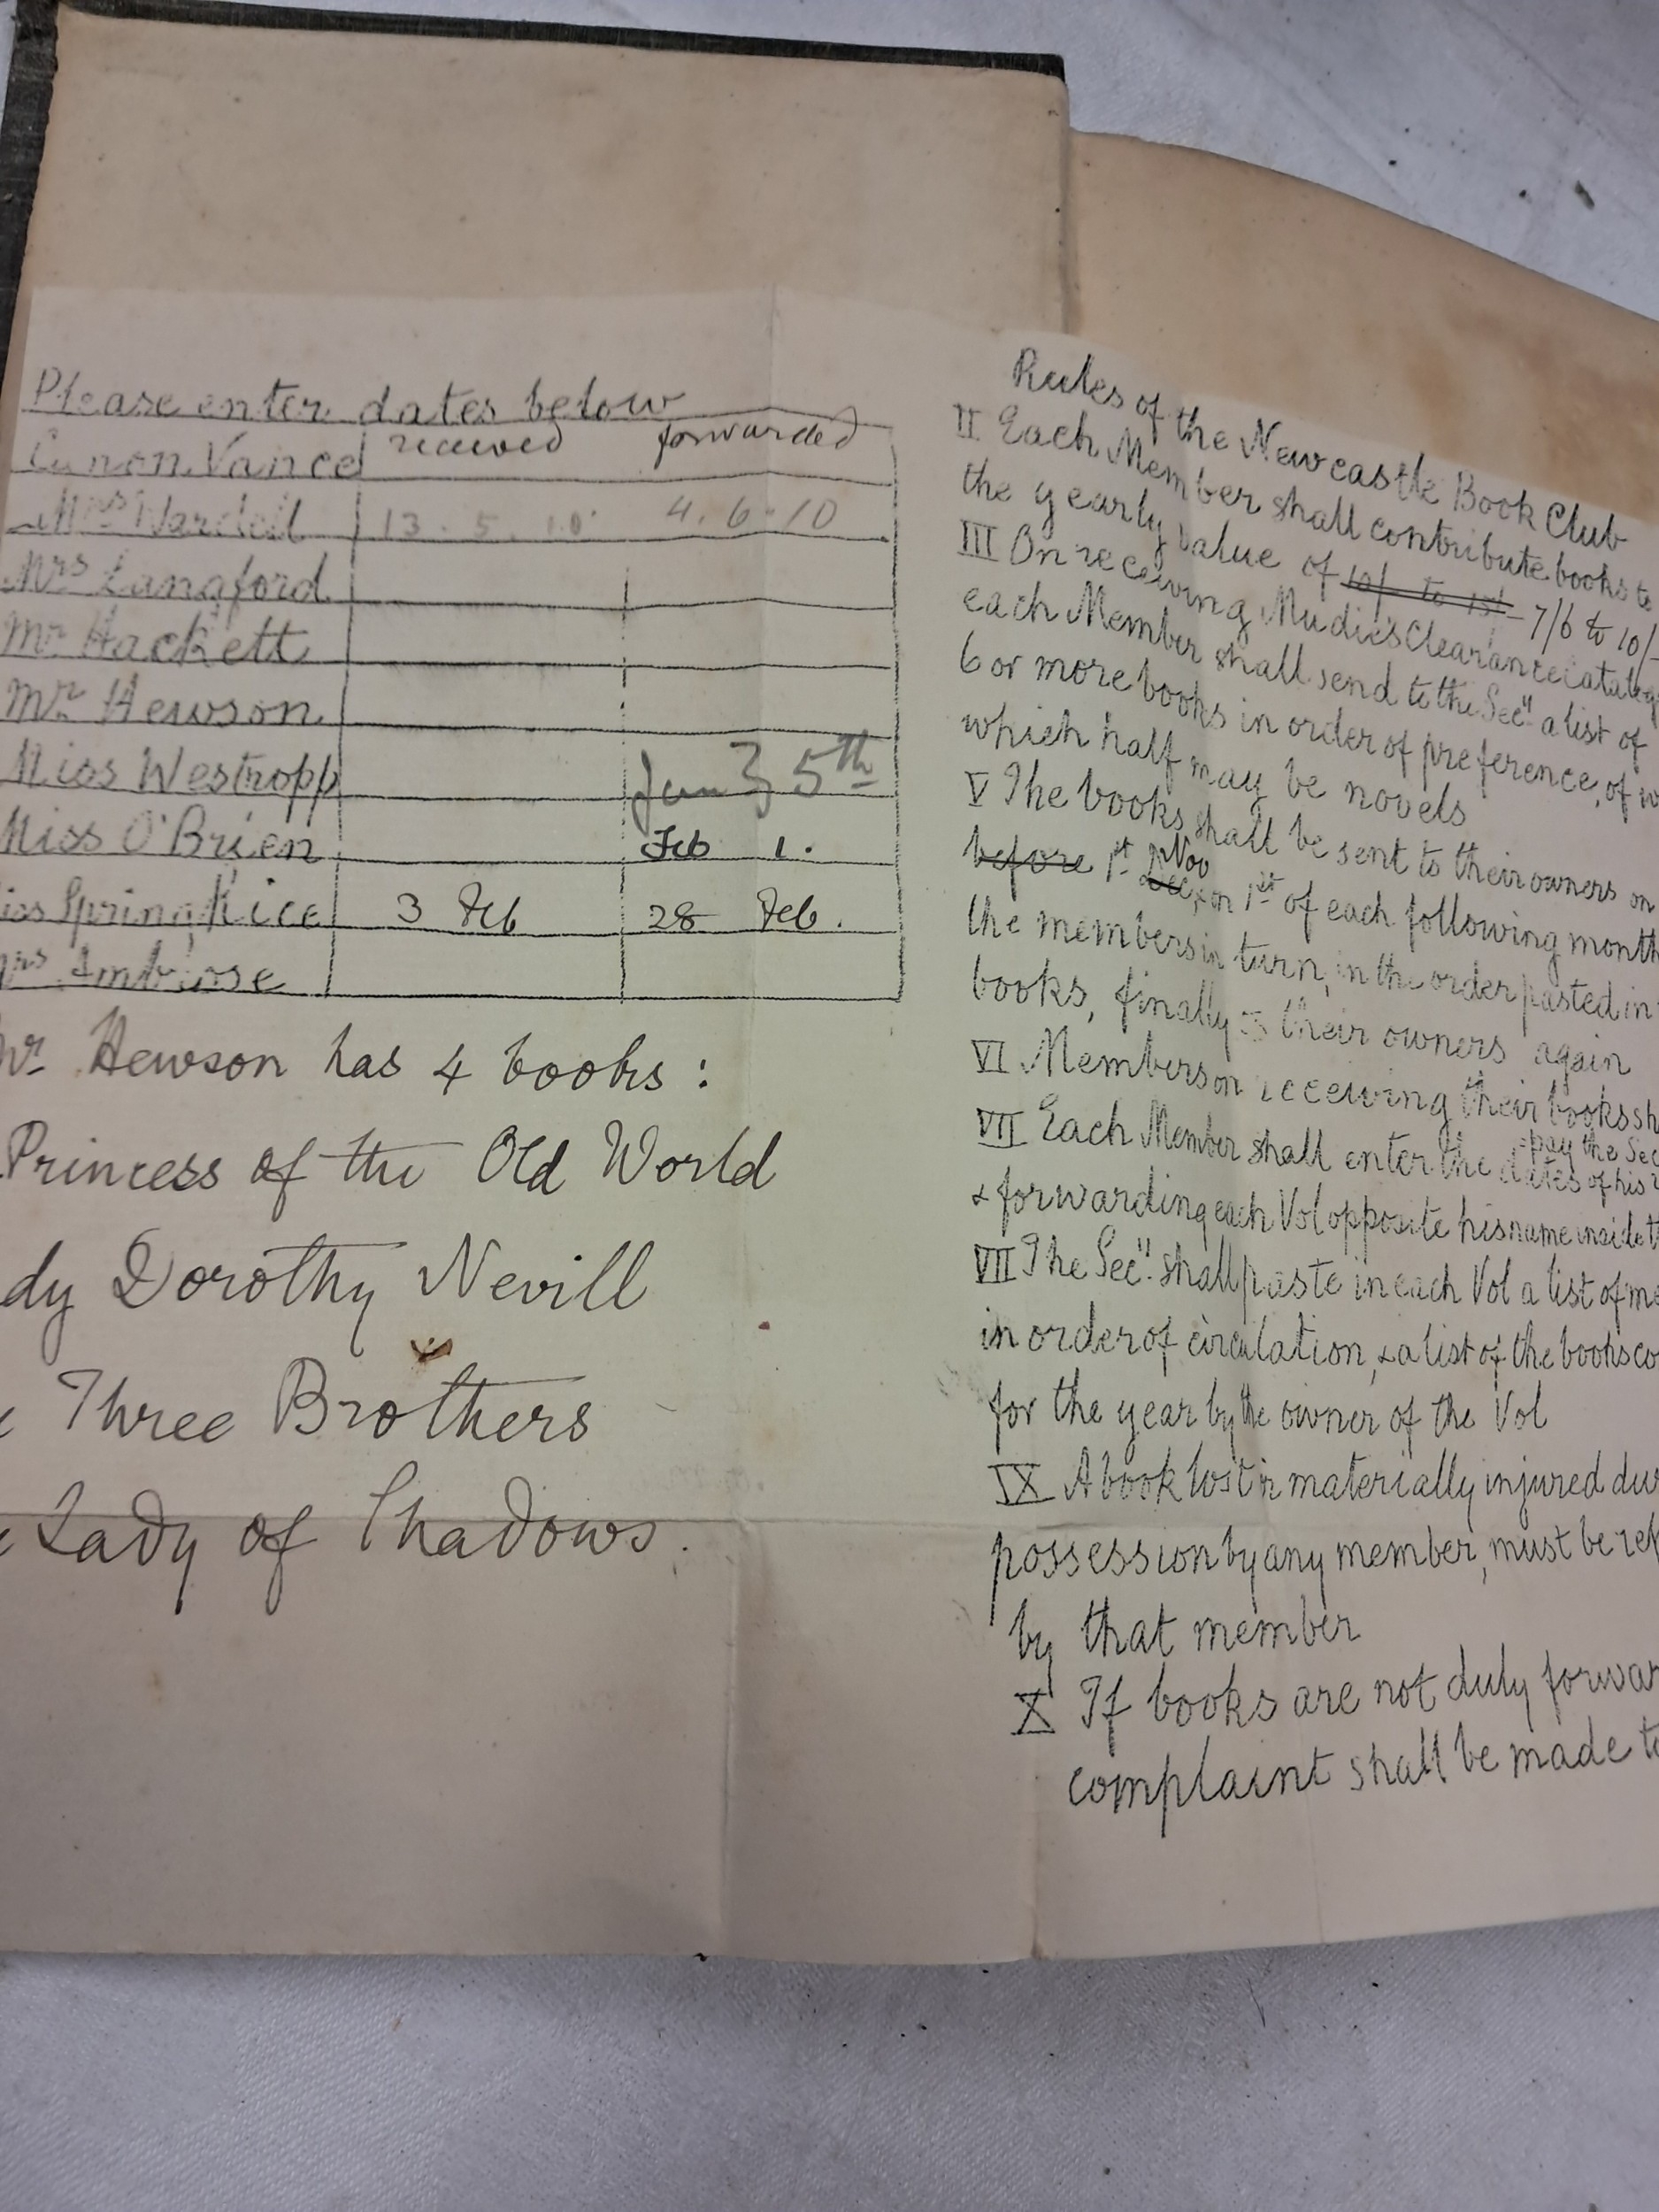 Please enter dates below
received forwarded
Canon Vance
Mrs Wardell 13. 5. 10. 4. 6. 10
Mrs Langford
Mr Hackett
Mr Hewson
Miss Westropp 5th
Miss O'Brien Feb 1.
iss Spring Rice 3 Feb 28 Feb.
rs Ambrose
Mr Hewson has 4 books:
Princess of the Old World
dy Dorothy Nevill
Three Brothers
Lady of Shadows.
Rules of the Newcastle Book Club
II Each Member shall contribute books to
the yearly value of 10/- to 15/- 7/6 to 10/-
III On receiving Mudie's Clearance catalog
each Member shall send to the Secy. a list of
6 or more books in order of preference, of w
which half may be novels
V The books shall be sent to their owners on
before 1st Dec Nov on 1st of each following month
the members in turn, in the order pasted in
books, finally to their owners again
VI Members on receiving their books sh
pay the Sec
VII Each Member shall enter the dates of his
& forwarding each Vol opposite his name inside t
VII The Secy. shall paste in each Vol a list of me
in order of circulation, & a list of the books co
for the year by the owner of the Vol
IX A book lost or materially injured du
possession by any member, must be re
by that member
X If books are not duly forwar
complaint shall be made to